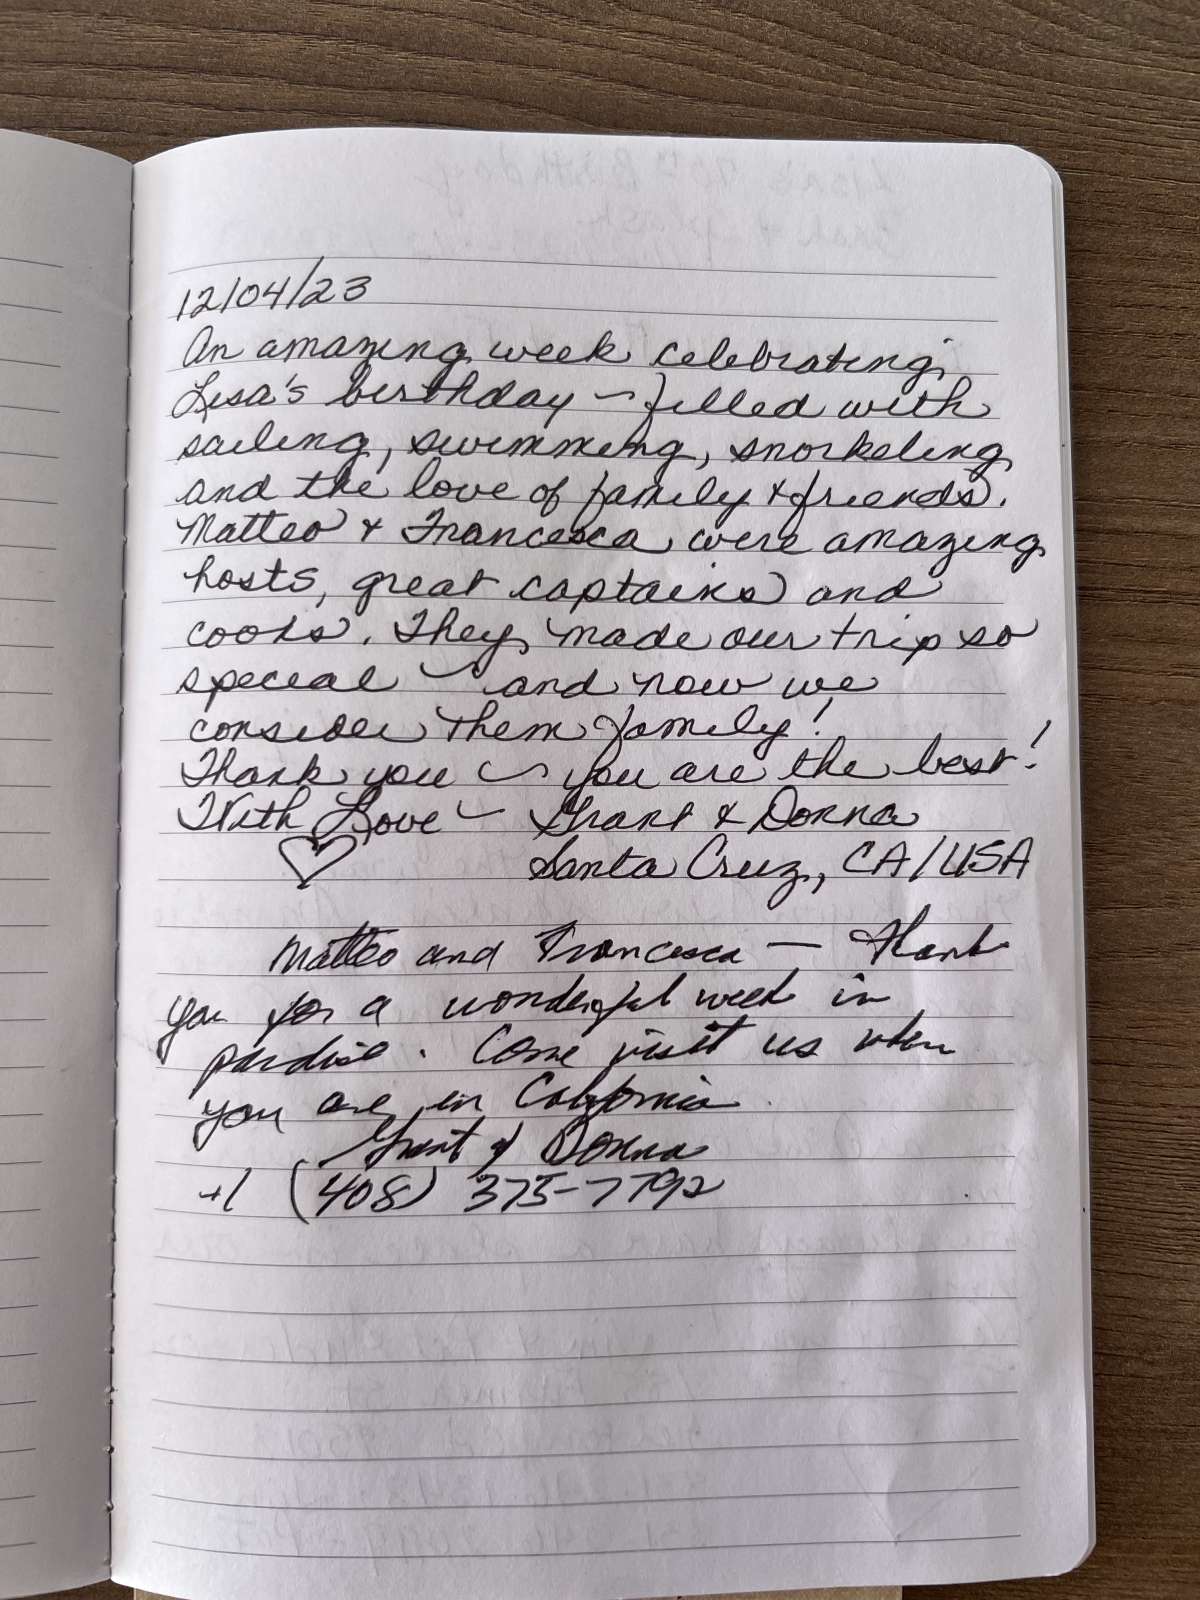 12/04/23
An amazing week celebrating
Lisa's birthday ~ filled with
sailing, swimming, snorkeling
and the love of family & friends.
Matteo & Francesca were amazing
hosts, great captains and
cooks. They made our trip so
special ~ and now we
consider them family!
Thank you ~ you are the best!
With Love ~ Grant & Donna
♡ Santa Cruz, CA/USA
Matteo and Francesca — Thank
you for a wonderful week in
paradise. Come visit us when
you are in California
Grant & Donna
+1 (408) 375-7792